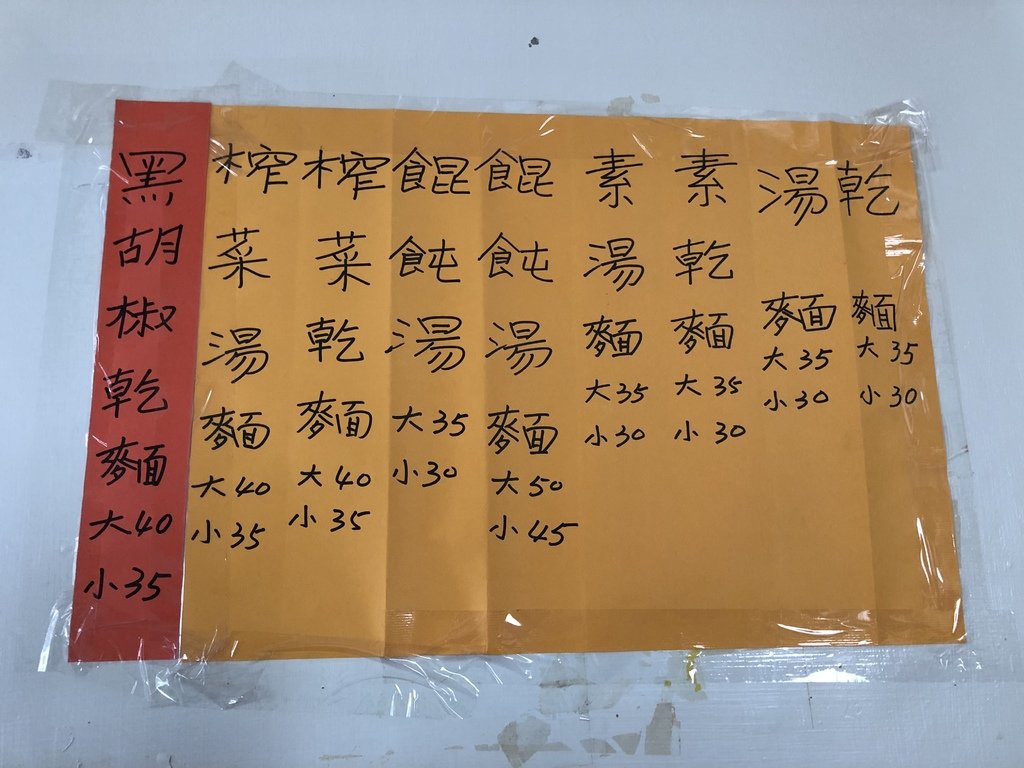 乾麵大35小30
湯麵大35小30
素乾麵大35小30
素湯麵大35小30
餛飩湯麵大50小45
餛飩湯大35小30
榨菜乾麵大40小35
榨菜湯麵大40小35
黑胡椒乾麵大40小35